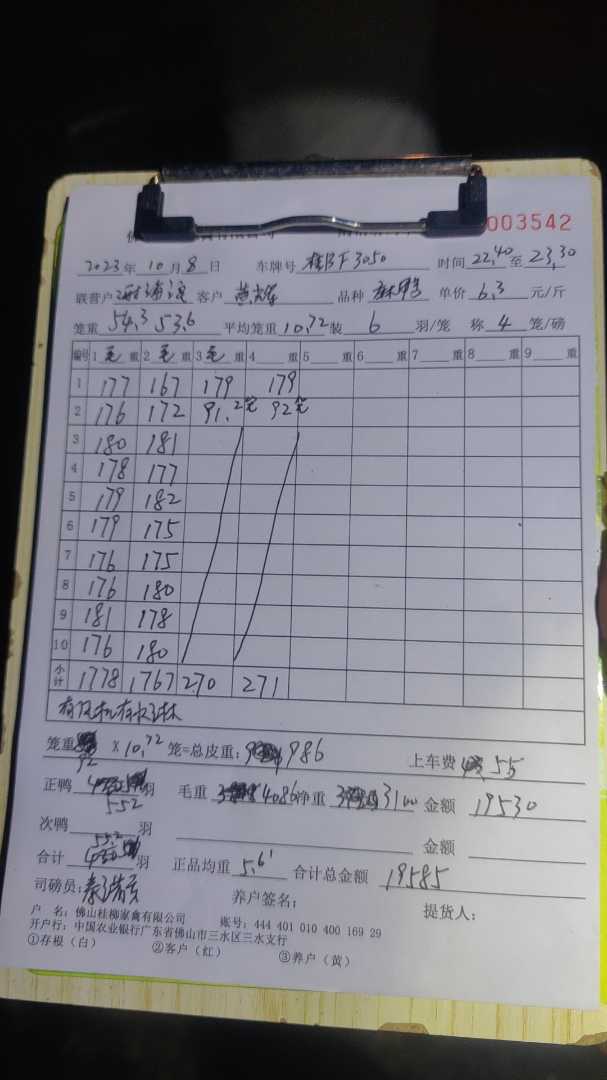 003542
2023年10月8日 车牌号 桂BF3050 时间 22.40 至 23.30
联营户 客户 黄光辉 品种 麻鸭 单价 6.3 元/斤
笼重 54.3 53.6 平均笼重 10.72 装 6 羽/笼 称 4 笼/磅
编号 1 毛 重 2 毛 重 3 毛 重 4 重 5 重 6 重 7 重 8 重 9 重
1 177 167 179 179
2 176 172 91.2笼 92笼
3 180 181
4 178 177
5 179 182
6 179 175
7 176 175
8 176 180
9 181 178
10 176 180
小计 1778 1767 270 271
笼重 92 × 10.72 笼=总皮重: 986 上车费 55
正鸭 552 羽 毛重 4086 净重 3100 金额 19530
次鸭 羽 金额
合计 552 羽 正品均重 5.61 合计总金额 19585
司磅员: 养户签名: 提货人:
户 名: 佛山桂柳家禽有限公司 账号: 444 401 010 400 169 29
开户行: 中国农业银行广东省佛山市三水区三水支行
①存根（白） ②客户（红） ③养户（黄）